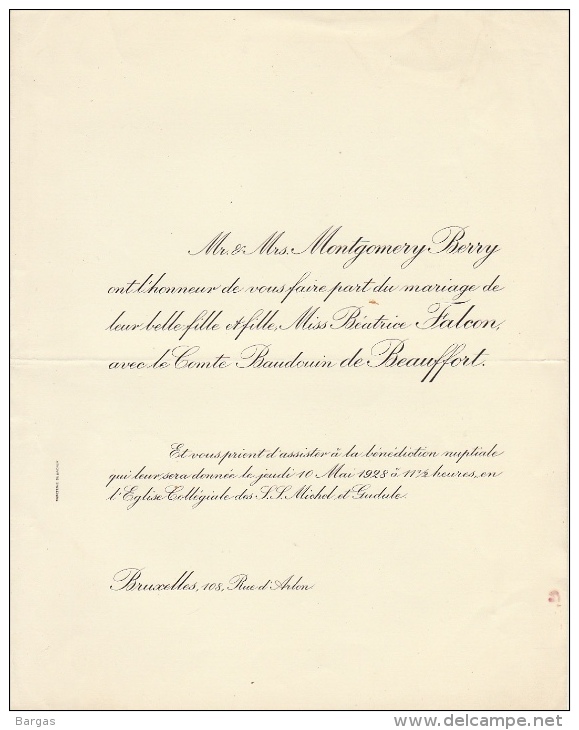 Mr. & Mrs. Montgomery Berry
ont l'honneur de vous faire part du mariage de
leur belle fille et fille, Miss Béatrice Falcon,
avec le Comte Baudouin de Beauffort.
Et vous prient d'assister à la bénédiction nuptiale
qui leur sera donnée le jeudi 10 Mai 1928 à 11½ heures, en
l'Eglise Collégiale des S.S. Michel et Gudule.
Bruxelles, 108, Rue d'Arlon
Bargas
www.delcampe.net